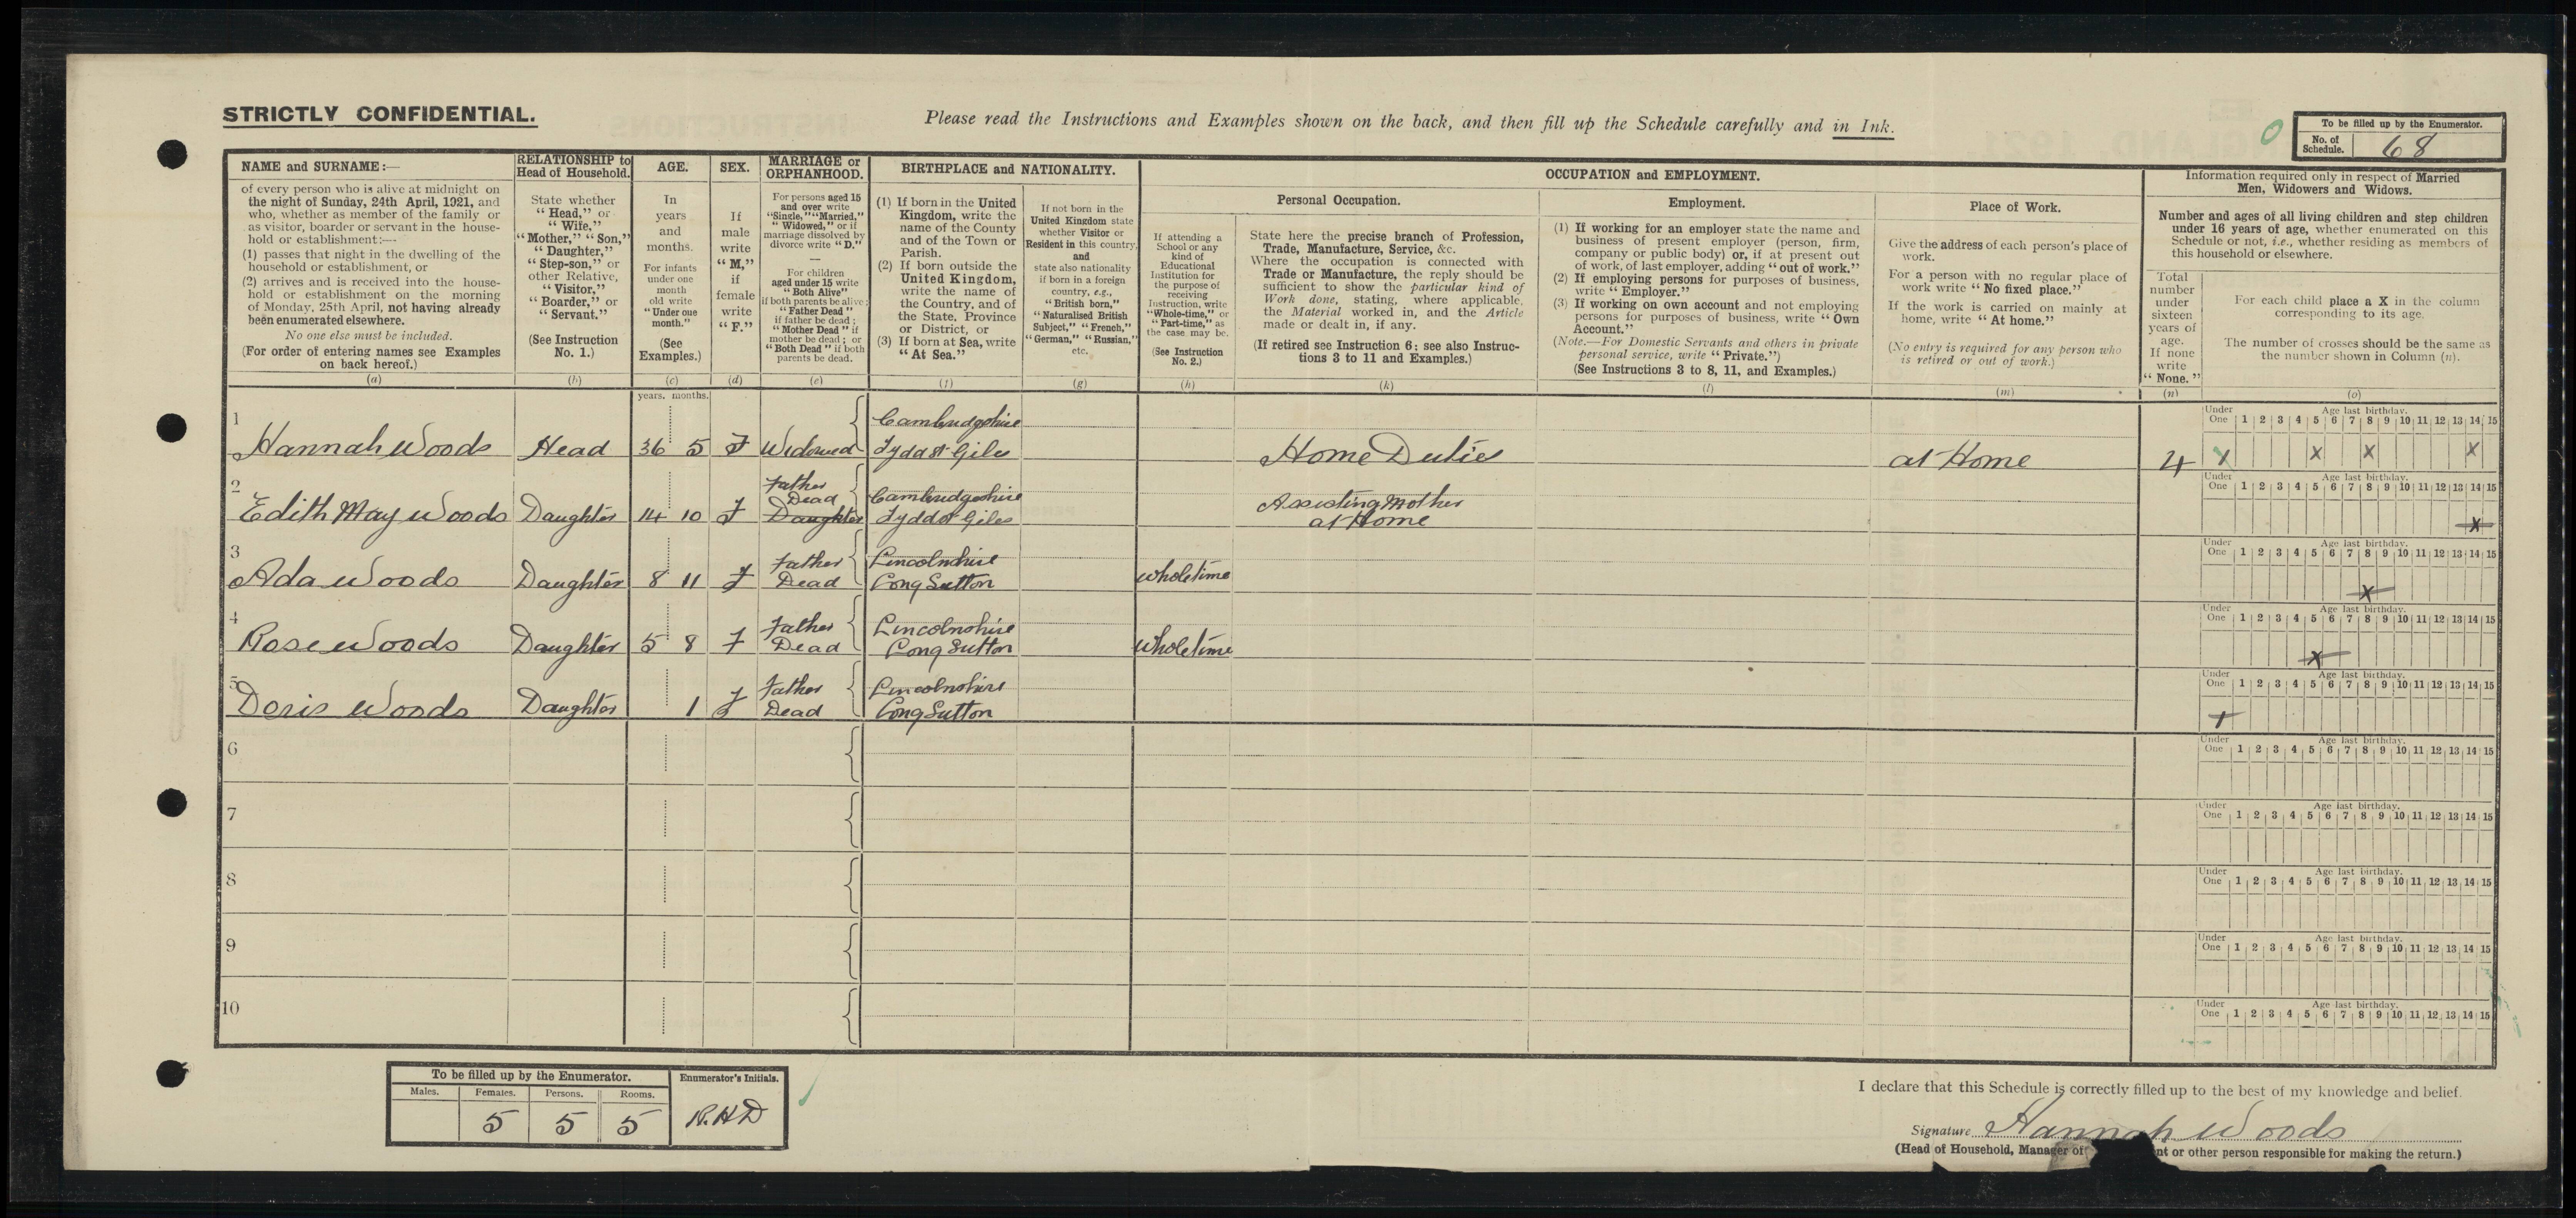 STRICTLY CONFIDENTIAL.
Please read the Instructions and Examples shown on the back, and then fill up the Schedule carefully and in Ink.
To be filled up by the Enumerator.
No. of
Schedule.
68
NAME and SURNAME:—
of every person who is alive at midnight on
the night of Sunday, 24th April, 1921, and
who, whether as member of the family or
as visitor, boarder or servant in the house-
hold or establishment:—
(1) passes that night in the dwelling of the
household or establishment, or
(2) arrives and is received into the house-
hold or establishment on the morning
of Monday, 25th April, not having already
been enumerated elsewhere.
No one else must be included.
(For order of entering names see Examples
on back hereof.)
(a)
RELATIONSHIP to
Head of Household.
State whether
"Head," or
"Wife,"
"Mother," "Son,"
"Daughter,"
"Step-son," or
other Relative,
"Visitor,"
"Boarder," or
"Servant."
(See Instruction
No. 1.)
(b)
AGE.
In
years
and
months.
For infants
under one
month
old write
"Under one
month."
(See
Examples.)
(c)
SEX.
If
male
write
"M,"
if
female
write
"F."
(d)
MARRIAGE or
ORPHANHOOD.
For persons aged 15
and over write
"Single," "Married,"
"Widowed," or if
marriage dissolved by
divorce write "D."
For children
aged under 15 write
"Both Alive"
if both parents be alive;
"Father Dead"
if father be dead;
"Mother Dead" if
mother be dead; or
"Both Dead" if both
parents be dead.
(e)
BIRTHPLACE and NATIONALITY.
(1) If born in the United
Kingdom, write the
name of the County
and of the Town or
Parish.
(2) If born outside the
United Kingdom,
write the name of
the Country, and of
the State, Province
or District, or
(3) If born at Sea, write
"At Sea."
(f)
If not born in the
United Kingdom state
whether Visitor or
Resident in this country,
and
state also nationality
if born in a foreign
country, e.g.,
"British born,"
"Naturalised British
Subject," "French,"
"German," "Russian,"
etc.
(g)
OCCUPATION and EMPLOYMENT.
If attending a
School or any
kind of
Educational
Institution for
the purpose of
receiving
Instruction, write
"Whole-time," or
"Part-time," as
the case may be.
(See Instruction
No. 2.)
(h)
Personal Occupation.
State here the precise branch of Profession,
Trade, Manufacture, Service, &c.
Where the occupation is connected with
Trade or Manufacture, the reply should be
sufficient to show the particular kind of
Work done, stating, where applicable,
the Material worked in, and the Article
made or dealt in, if any.
(If retired see Instruction 6; see also Instruc-
tions 3 to 11 and Examples.)
(k)
Employment.
(1) If working for an employer state the name and
business of present employer (person, firm,
company or public body) or, if at present out
of work, of last employer, adding "out of work."
(2) If employing persons for purposes of business,
write "Employer."
(3) If working on own account and not employing
persons for purposes of business, write "Own
Account."
(Note.—For Domestic Servants and others in private
personal service, write "Private.")
(See Instructions 3 to 8, 11, and Examples.)
(l)
Place of Work.
Give the address of each person's place of
work.
For a person with no regular place of
work write "No fixed place."
If the work is carried on mainly at
home, write "At home."
(No entry is required for any person who
is retired or out of work.)
(m)
Information required only in respect of Married
Men, Widowers and Widows.
Number and ages of all living children and step children
under 16 years of age, whether enumerated on this
Schedule or not, i.e., whether residing as members of
this household or elsewhere.
Total
number
under
sixteen
years of
age.
If none
write
"None."
(n)
For each child place a X in the column
corresponding to its age.
The number of crosses should be the same as
the number shown in Column (n).
(o)
years. months.
1
Hannah Woods Head 36 5 F Widowed Cambridgshire
Tydd St Giles Home Duties at Home 4
Under
One 1 2 3 4 5 6 7 8 9 10 11 12 13 14 15
Age last birthday.
X X X X
2
Edith May Woods Daughter 14 10 F Father
Dead
Daughter
Cambridgshire
Tydd St Giles
Assisting Mother
at Home
Under
One 1 2 3 4 5 6 7 8 9 10 11 12 13 14 15
Age last birthday.
X
3
Ada Woods Daughter 8 11 F Father
Dead
Lincolnshire
Long Sutton
whole time
Under
One 1 2 3 4 5 6 7 8 9 10 11 12 13 14 15
Age last birthday.
X
4
Rose Woods Daughter 5 8 F Father
Dead
Lincolnshire
Long Sutton
whole time
Under
One 1 2 3 4 5 6 7 8 9 10 11 12 13 14 15
Age last birthday.
X
5
Doris Woods Daughter 1 F Father
Dead
Lincolnshire
Long Sutton
Under
One 1 2 3 4 5 6 7 8 9 10 11 12 13 14 15
Age last birthday.
X
6
Under
One 1 2 3 4 5 6 7 8 9 10 11 12 13 14 15
Age last birthday.
7
Under
One 1 2 3 4 5 6 7 8 9 10 11 12 13 14 15
Age last birthday.
8
Under
One 1 2 3 4 5 6 7 8 9 10 11 12 13 14 15
Age last birthday.
9
Under
One 1 2 3 4 5 6 7 8 9 10 11 12 13 14 15
Age last birthday.
10
Under
One 1 2 3 4 5 6 7 8 9 10 11 12 13 14 15
Age last birthday.
To be filled up by the Enumerator.
Males. Females. Persons. Rooms.
5 5 5
Enumerator's Initials.
R.H.D
I declare that this Schedule is correctly filled up to the best of my knowledge and belief.
Signature Hannah Woods
(Head of Household, Manager of nt or other person responsible for making the return.)